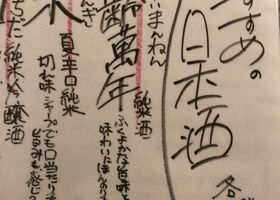 すすめの
日本酒
各
いまんねん
齢萬年
純米酒
ふくよかな旨味と
味わいにほんのり
夏辛口純米
切れ味シャープでも口当たり
旨味も
純米吟醸酒